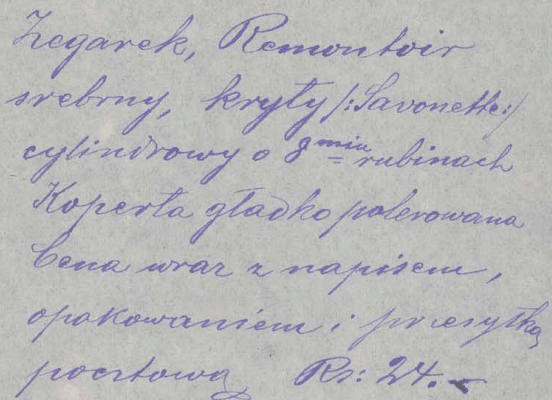 Zegarek, Remontoir
srebrny, kryty /:Savonette:/
cylindrowy o 8miu rubinach
Koperta gładko polerowana
Cena wraz z napisem,
opakowaniem i przesyłką
pocztową Rs: 24.-